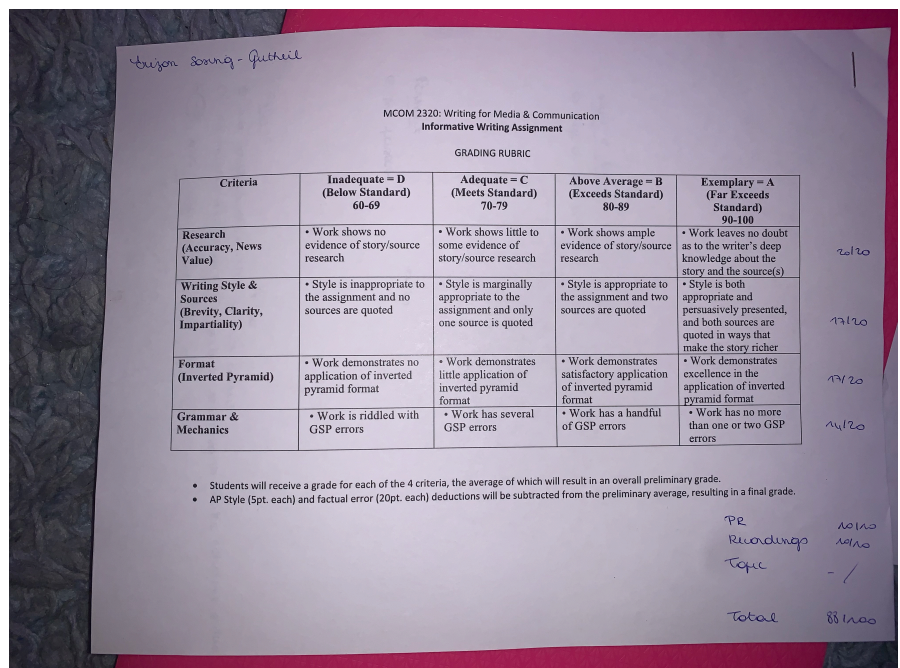 MCOM 2320: Writing for Media & Communication
Informative Writing Assignment
GRADING RUBRIC
Criteria
Inadequate = D
(Below Standard)
60-69
Adequate = C
(Meets Standard)
70-79
Above Average = B
(Exceeds Standard)
80-89
Exemplary = A
(Far Exceeds
Standard)
90-100
Research
(Accuracy, News
Value)
• Work shows no
evidence of story/source
research
• Work shows little to
some evidence of
story/source research
• Work shows ample
evidence of story/source
research
• Work leaves no doubt
as to the writer's deep
knowledge about the
story and the source(s)
20/20
Writing Style &
Sources
(Brevity, Clarity,
Impartiality)
• Style is inappropriate to
the assignment and no
sources are quoted
• Style is marginally
appropriate to the
assignment and only
one source is quoted
• Style is appropriate to
the assignment and two
sources are quoted
• Style is both
appropriate and
persuasively presented,
and both sources are
quoted in ways that
make the story richer
17/20
Format
(Inverted Pyramid)
• Work demonstrates no
application of inverted
pyramid format
• Work demonstrates
little application of
inverted pyramid
format
• Work demonstrates
satisfactory application
of inverted pyramid
format
• Work demonstrates
excellence in the
application of inverted
pyramid format
17/20
Grammar &
Mechanics
• Work is riddled with
GSP errors
• Work has several
GSP errors
• Work has a handful
of GSP errors
• Work has no more
than one or two GSP
errors
14/20
• Students will receive a grade for each of the 4 criteria, the average of which will result in an overall preliminary grade.
• AP Style (5pt. each) and factual error (20pt. each) deductions will be subtracted from the preliminary average, resulting in a final grade.
PR 10/10
Recordings 10/10
Topic - /
Total 88/100